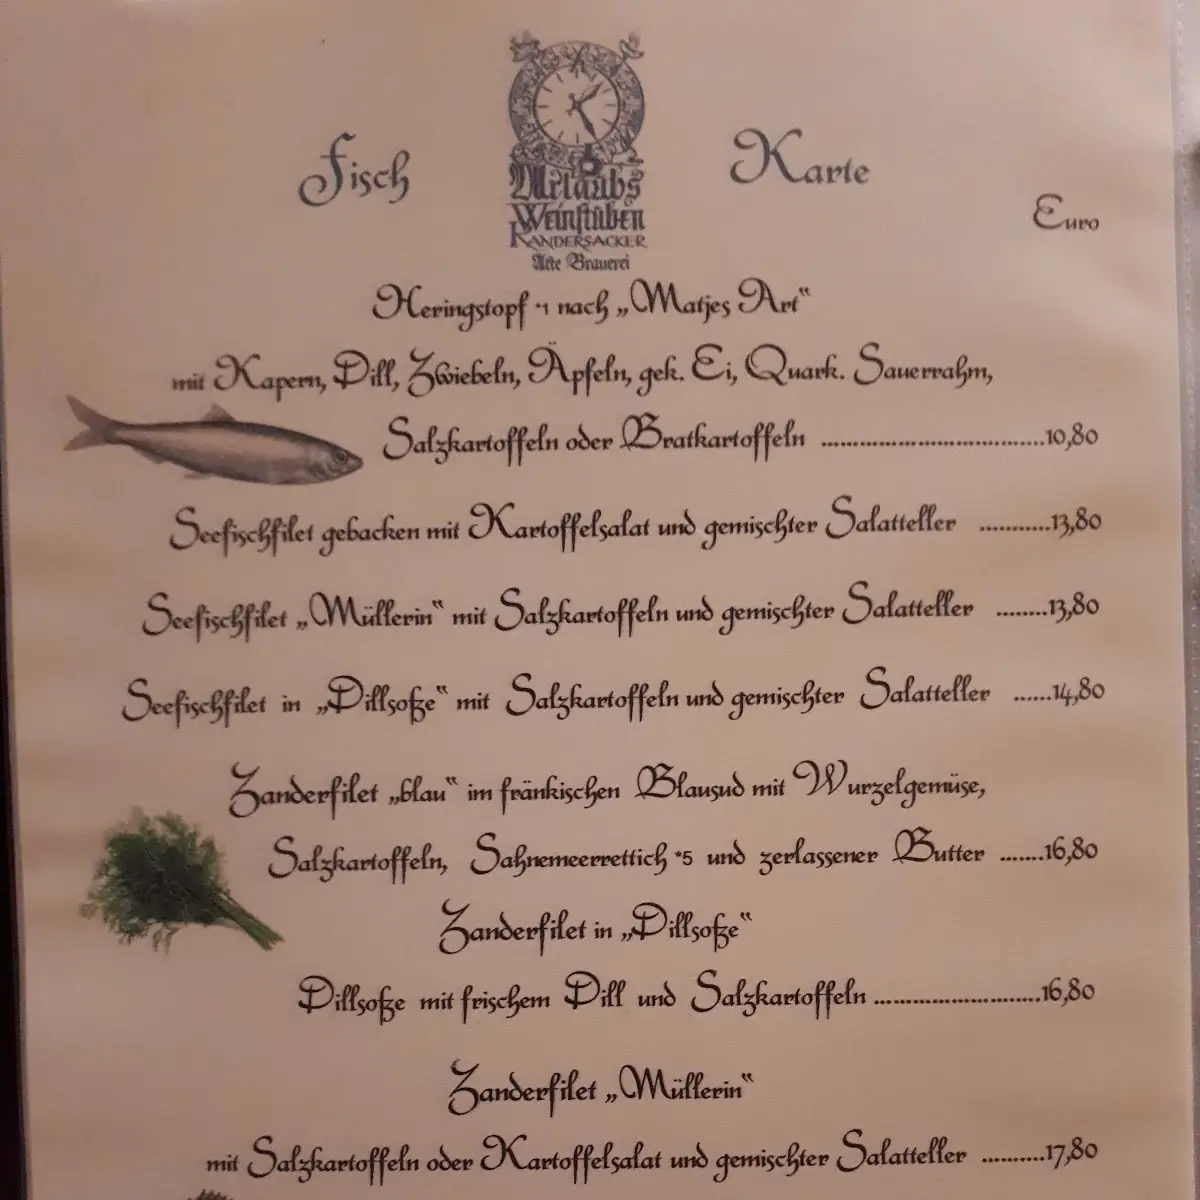 Fisch Karte
Urlaubs
Weinstuben
RANDERSACKER
Alte Brauerei
Euro
Heringstopf *1 nach „Matjes Art“
mit Kapern, Dill, Zwiebeln, Äpfeln, gek. Ei, Quark. Sauerrahm,
Salzkartoffeln oder Bratkartoffeln ..................................10,80
Seefischfilet gebacken mit Kartoffelsalat und gemischter Salatteller ...........13,80
Seefischfilet „Müllerin“ mit Salzkartoffeln und gemischter Salatteller ........13,80
Seefischfilet in „Dillsoße“ mit Salzkartoffeln und gemischter Salatteller ......14,80
Zanderfilet „blau“ im fränkischen Blausud mit Wurzelgemüse,
Salzkartoffeln, Sahnemeerrettich *5 und zerlassener Butter .......16,80
Zanderfilet in „Dillsoße“
Dillsoße mit frischem Dill und Salzkartoffeln .........................16,80
Zanderfilet „Müllerin“
mit Salzkartoffeln oder Kartoffelsalat und gemischter Salatteller ..........17,80